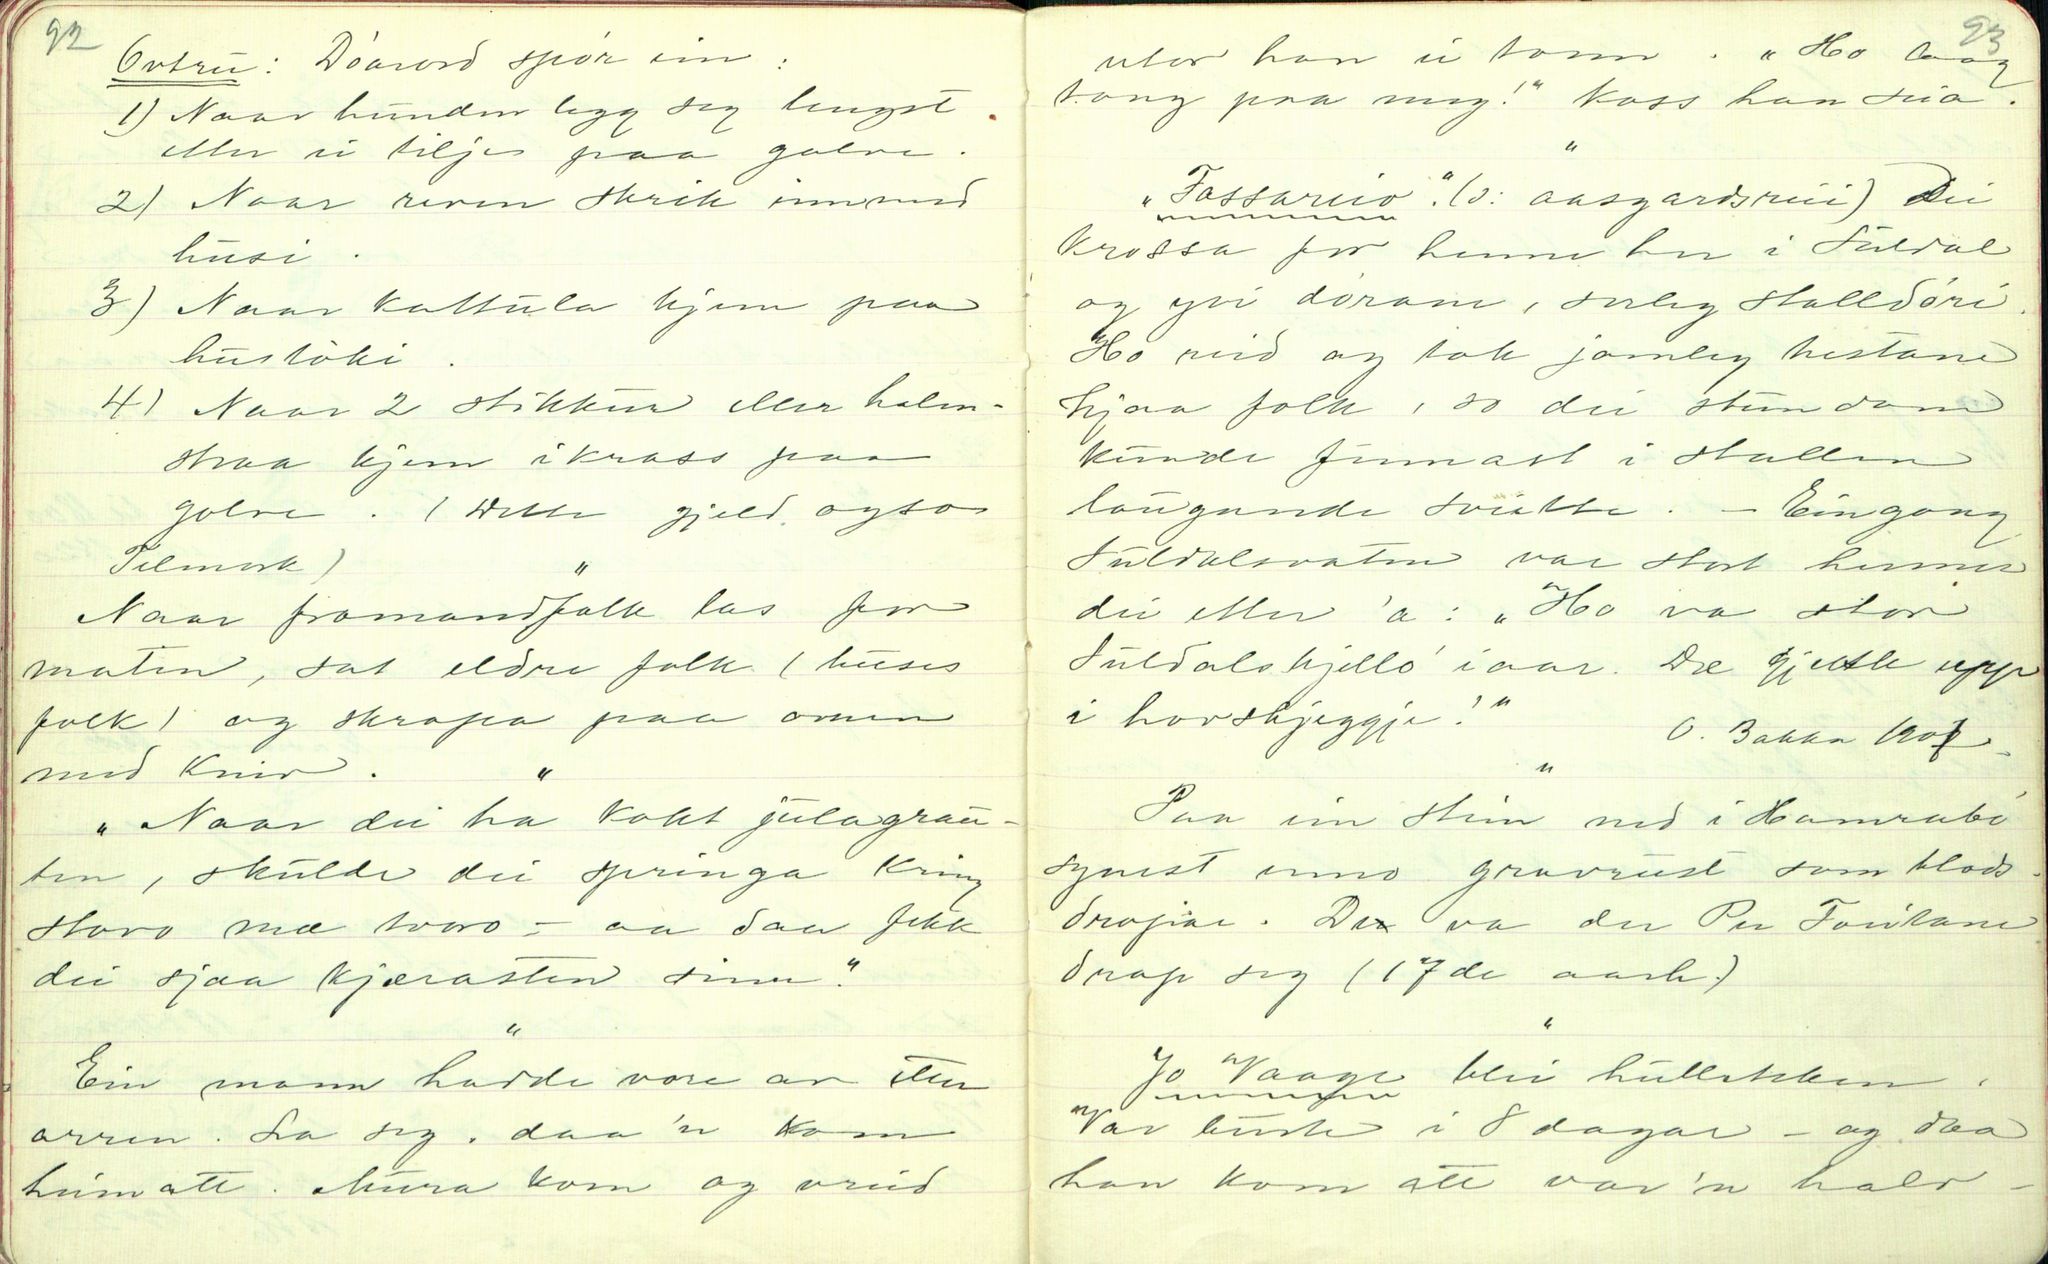 92
Ovtru: Döarord spör ein:
1) Naar hunden legg seg lengst
etter ei tilje paa golve.
2) Naar reven skrik innmed
husi.
3) Naar kattula kjem paa
hustöki.
4) Naar 2 stikkur eller halm-
straa kjem i kross paa
golve. (Dette gjeld ogso
Telmork)
"
Naar framandfolk las for
maten, sat eldre folk (huses
folk) og skrapa paa omnen
med kniv.
"
"Naar dei ha kokt julagrau-
ten, skulde dei springa kring
stovo mæ tvoro – aa daa fekk
dei sjaa kjærasten sin."
"
Ein mann hadde vore av etter
orren. La seg, daa'n kom
heimatt. Mura kom og vreid
93
utor han ei tonn. "Ho
tong paa meg!" Kass han sia.
"
"Fossareio". (o: aasgardsreii) Dei
krossa for henne her i Suldal
og yvi dörane, serleg stalldöri.
Ho reid og tok jamleg hestane
hjaa folk, so dei stundom
kunde finnast i stallen
laugande sveitte. – Eingong
Suldalsvatnet var stort hermer
dei etter 'a: "Ho va stor
Suldalskjello i aar. Dæ gjekk upp
i horskjeggje!"
O. Bakka 1907
"
Paa ein stein ned i Hamrabö
synest enno gravrust som blods-
dropar. Dæ va der Per Foutane
drap seg (17de aarh.)
"
Jo Vaage blei hulltekken.
Var burte i 8 dagar – og daa
han kom att var'n halv-